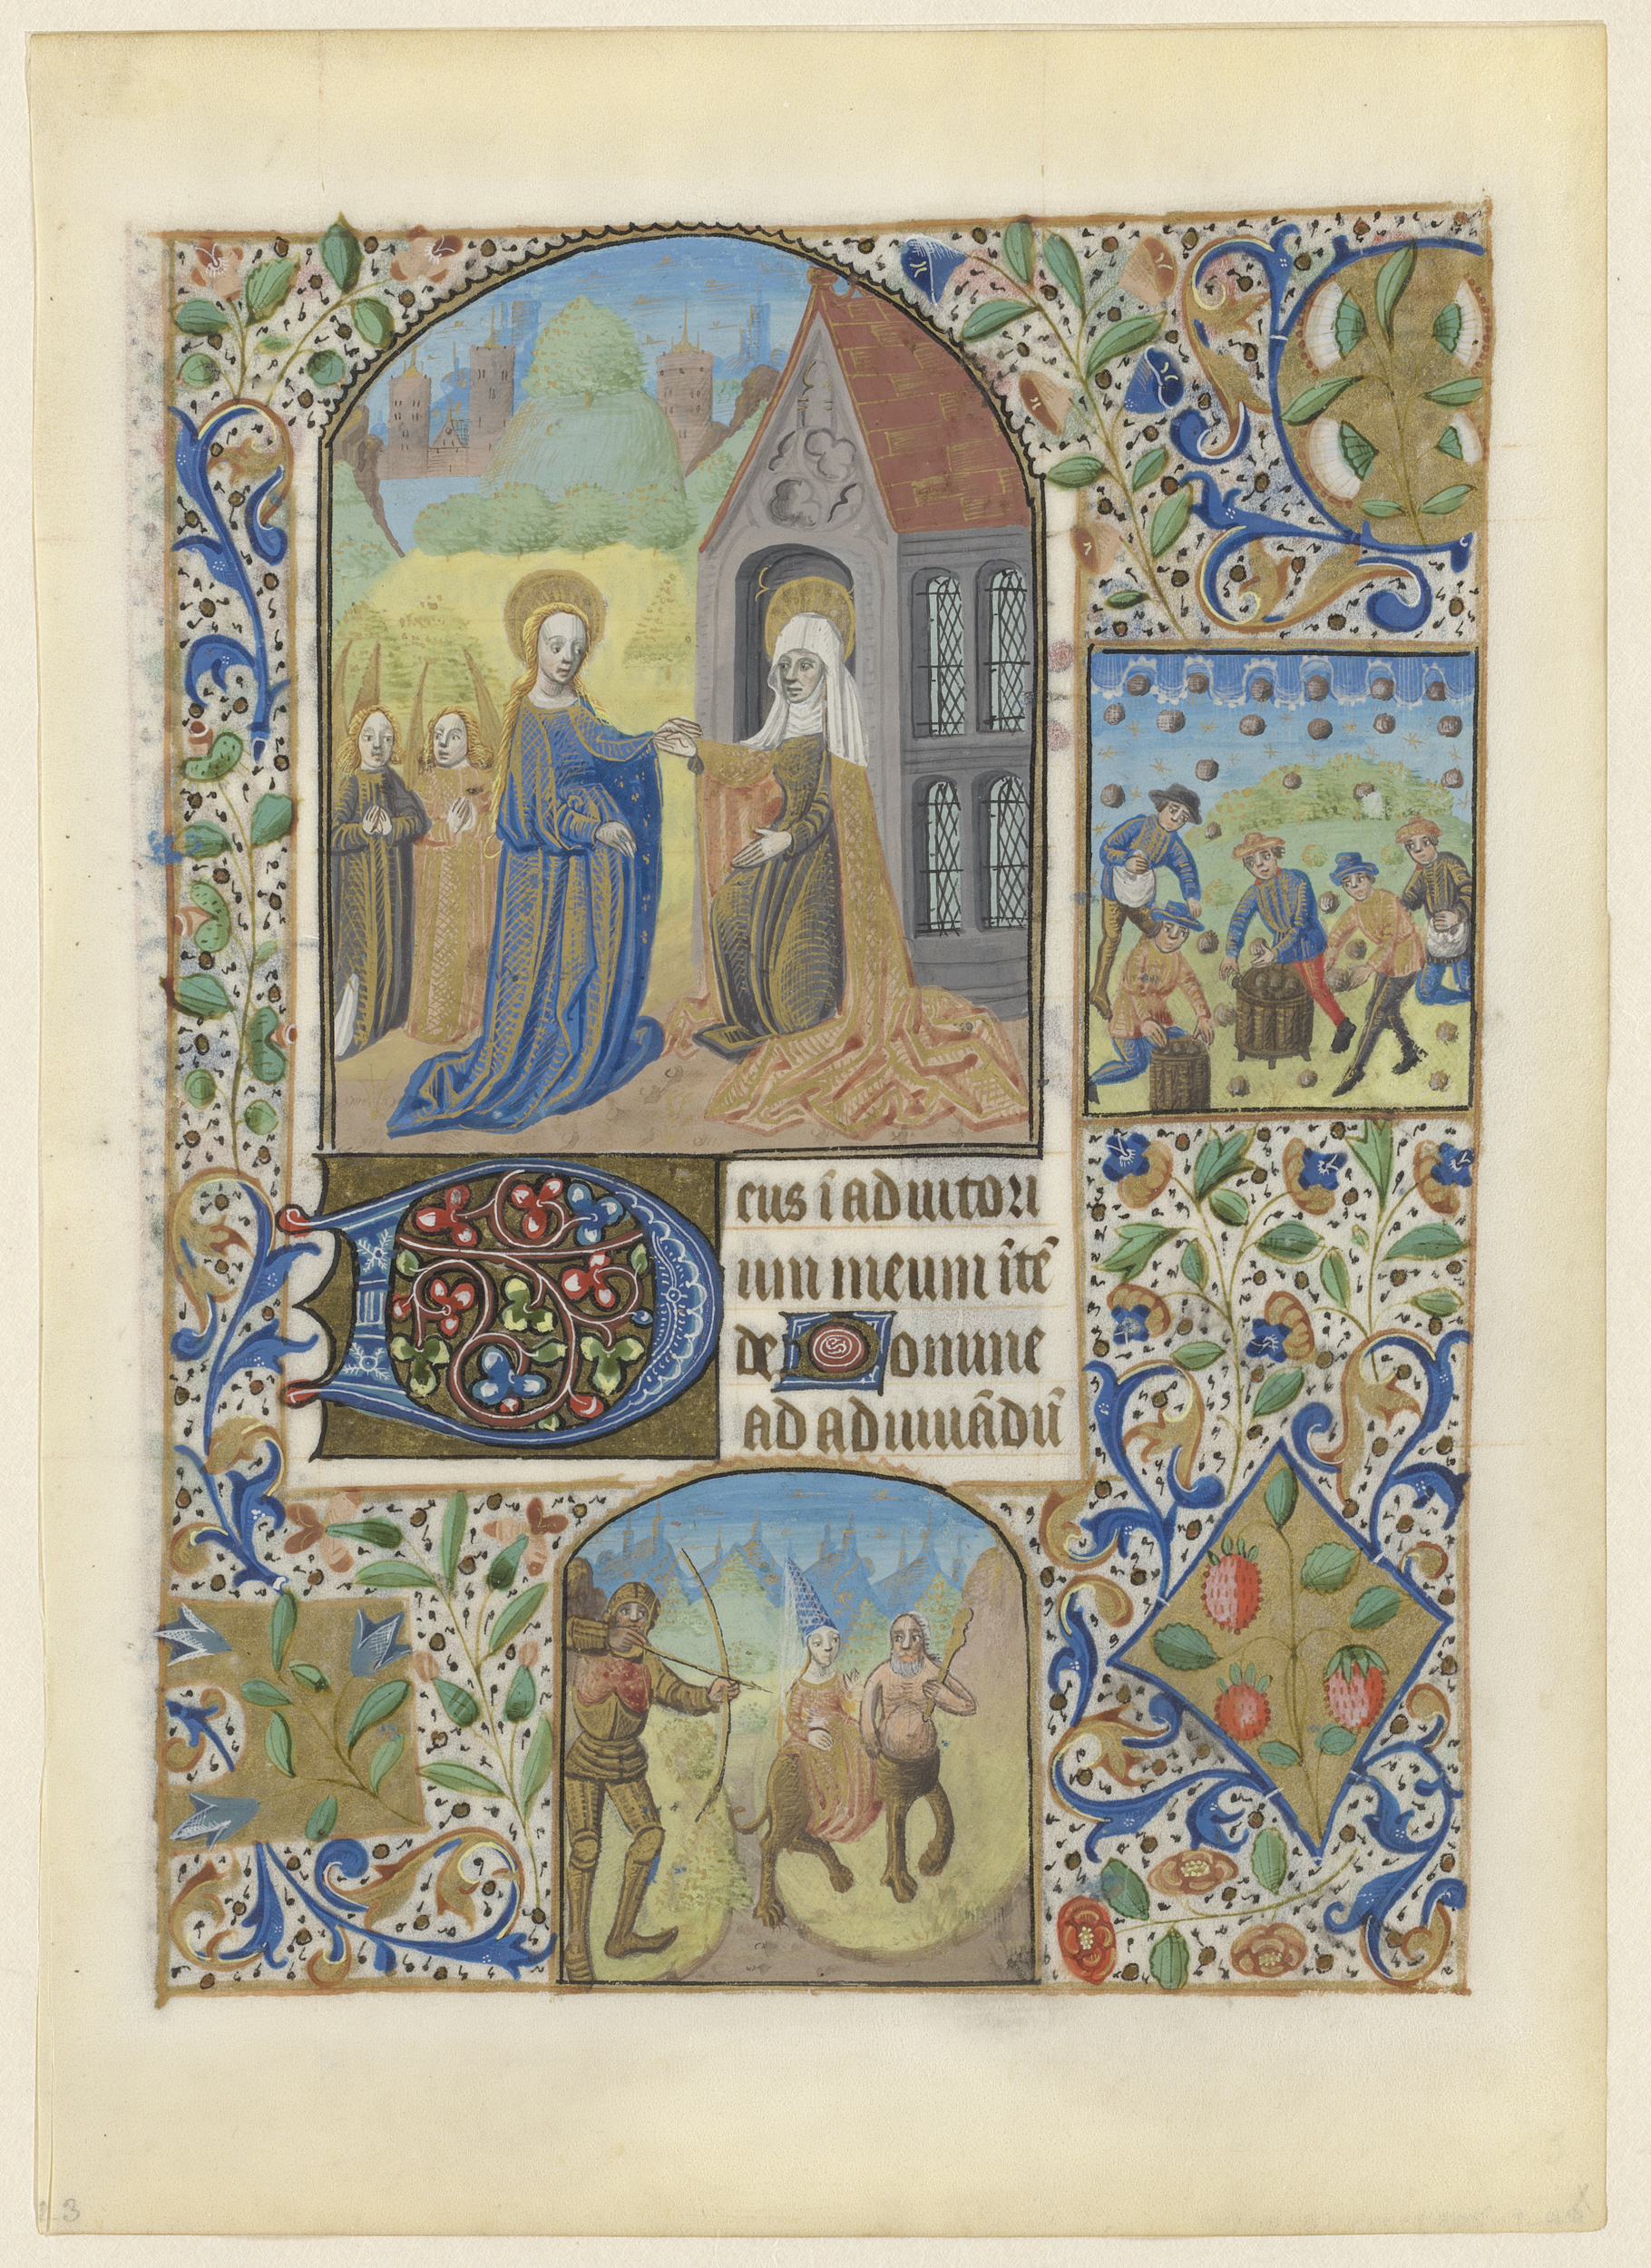 Deus ī adiutori
um meum ītē
de Domine
ad adiuuādū
23